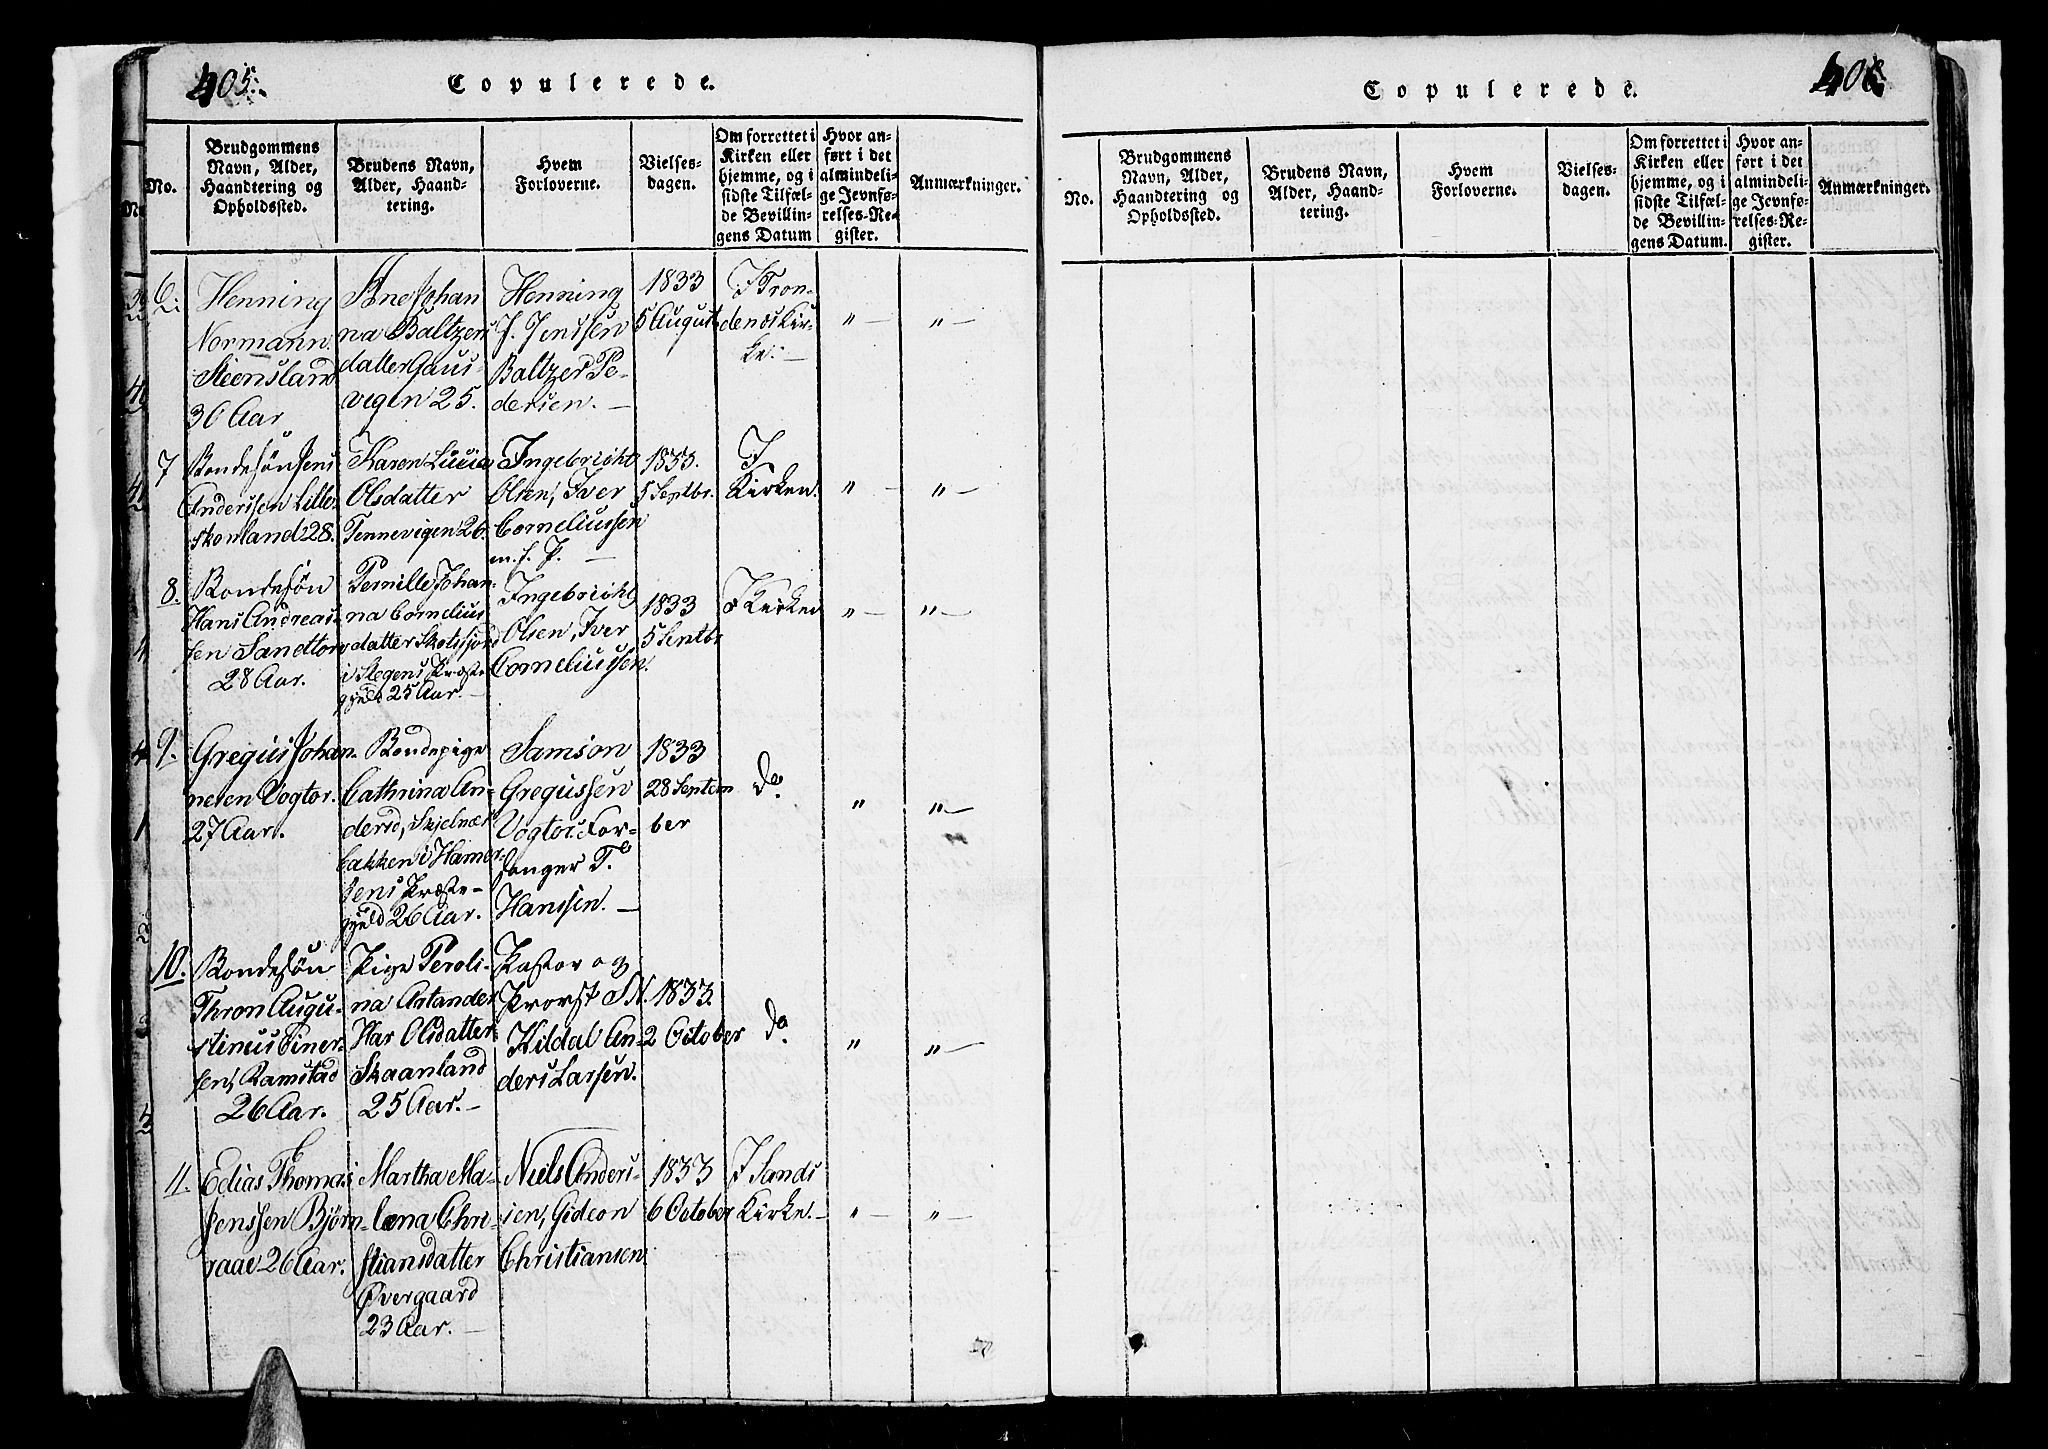 405.
Copulerede.
No.
Brudgommens
Navn, Alder,
Haandtering og
Opholdssted.
Brudens Navn,
Alder, Haand-
tering.
Hvem
Forloverne.
Vielses-
dagen.
Om forrettet i
Kirken eller
hjemme, og i
sidste Tilfæl-
de Bevillin-
gens Datum
Hvor an-
ført i det
almindeli-
ge Jevnfø-
relses-Re-
gister.
Anmærkninger.
6.
Henning
Normann
Steensland
30 Aar
Ane Johan
na Baltzers
datter Gaus-
vigen 25.
Henning
J. Jenssen
Baltzer Pe-
dersen. —
1833
5 August
I Tron-
denæs Kir-
ke. —
" — " —
7
Bondesøn Jens
Anderssen Lille-
skonland 28.
Karen Lucia
Olsdatter
Tennevigen 26.
Ingebricht
Olsen, Iver
Corneliussen
m. f. P. —
1833.
5 Septbr.
I
Kirken.
" — " —
8.
Bondesøn
Hans Andreas-
sen Sandtorv
28 Aar.
Pernille Johan-
na Cornelius
datter Skotsfjord
i Stegens Præste-
gjeld 25 Aar. —
Ingebricht
Olsen, Iver
Corneliussen.
1833
5 Septbr
I Kirken
" — " —
9.
Gregus Johan-
nesen Vogtor.
27 Aar.
Bondepige
Cathrina An-
dersd, Skjelnæs
bakken i Hamer-
søens Præste-
gjeld 26 Aar.
Samson
Gregussen
Vogtor. For-
sanger T.
Hanssen. —
1833
28 Septem
ber
do.
" " —
10.
Bondesøn
Thron Augu-
stinus Einer-
sen, Ramstad
26 Aar.
Pige Peroli-
na Artander
Har Olsdatter
Skaanland
25 Aar. —
Pastor og
Provst S N.
Kildal An-
ders Larsen.
1833.
2 October
do.
" " —
11.
Edias Thomas
Jenssen Bjørn-
raae 26 Aar.
Martha Ma-
læna Chri-
stiansdatter
Øvergaard
23 Aar. —
Niels Anders-
sen, Gideon
Christiansen
1833
6 October
I Sands
Kirke. —
" — " —
406
Copulerede.
No.
Brudgommens
Navn, Alder,
Haandtering og
Opholdssted.
Brudens Navn,
Alder, Haand-
tering.
Hvem
Forloverne.
Vielses-
dagen.
Om forrettet i
Kirken eller
hjemme, og i
sidste Tilfæl-
de Bevillin-
gens Datum.
Hvor an-
ført i det
almindeli-
ge Jevnfø-
relses-Re-
gister.
Anmærkninger.